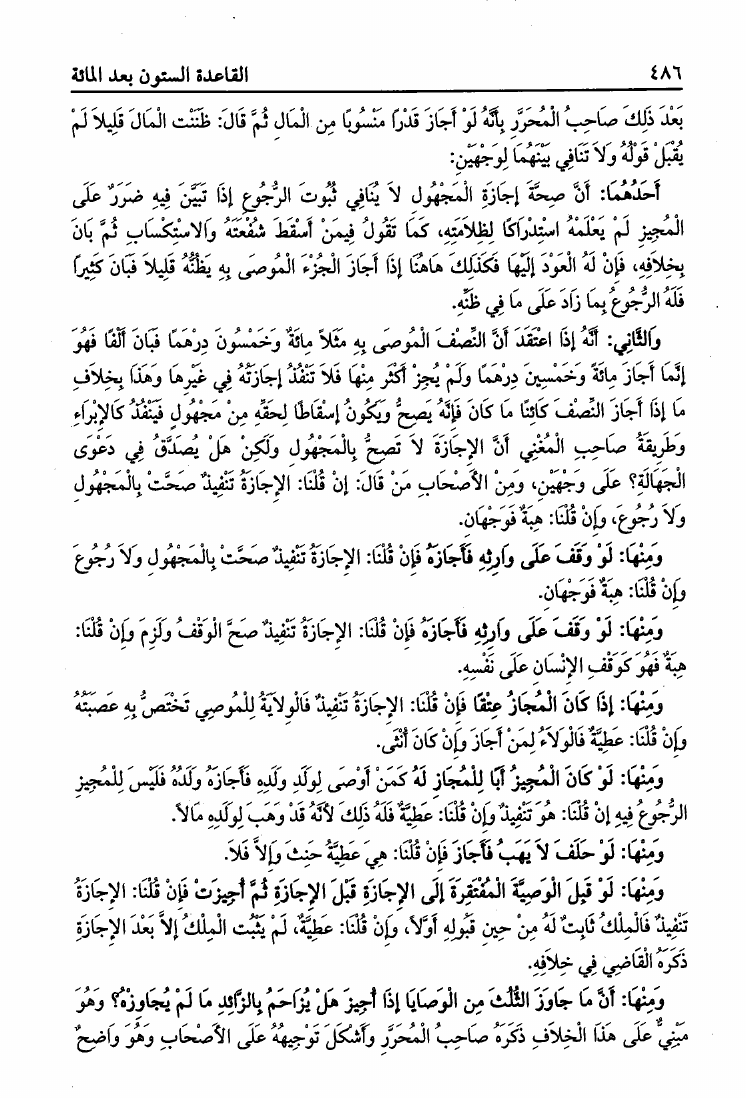 ٤٨٦
القاعدة الستون بعد المائة
بَعْدَ ذَلِكَ صَاحِبُ الْمُحَرَّرِ بِأَنَّهُ لَوْ أَجَازَ قَدْرًا مَنْسُوبًا مِن الْمَالِ ثُمَّ قَالَ: ظَنَنْت الْمَالَ قَلِيلاً لَمْ
يُقْبَلْ قَوْلُهُ وَلاَ تَنَافِي بَيْنَهُمَا لِوَجْهَيْنِ:
أَحَدُهُمَا: أَنَّ صِحَّةَ إجَازَةِ الْمَجْهُولِ لاَ يُنَافِي ثُبُوتَ الرُّجُوعِ إذَا تَبَيَّنَ فِيهِ ضَرَرٌ عَلَى
الْمُجِيزِ لَمْ يَعْلَمْهُ اسْتِدْرَاكًا لِظَلاَمَتِهِ، كَمَا تَقُولُ فِيمَنْ أَسْقَطَ شُفْعَتَهُ وَالاسْتِكْسَابِ ثُمَّ بَانَ
بِخِلاَفِهِ، فَإِنْ لَهُ الْعَوْدَ إلَيْهَا فَكَذَلِكَ هَاهُنَا إذَا أَجَازَ الْجُزْءَ الْمُوصَى بِهِ يَظُنُّهُ قَلِيلاً فَبَانَ كَثِيرًا
فَلَهُ الرُّجُوعُ بِمَا زَادَ عَلَى مَا فِي ظَنِّهِ.
وَالثَّانِي: أَنَّهُ إذَا اعْتَقَدَ أَنَّ النِّصْفَ الْمُوصَى بِهِ مَثَلاً مِائَةٌ وَخَمْسُونَ دِرْهَمًا فَبَانَ أَلْفًا فَهُوَ
إنَّمَا أَجَازَ مِائَةً وَخَمْسِينَ دِرْهَمًا وَلَمْ يُجِزْ أَكْثَرَ مِنْهَا فَلاَ تَنْفُذُ إجَازَتُهُ فِي غَيْرِهَا وَهَذَا بِخِلاَفِ
مَا إذَا أَجَازَ النِّصْفَ كَائِنًا مَا كَانَ فَإِنَّهُ يَصِحُّ وَيَكُونُ إسْقَاطًا لِحَقِّهِ مِنْ مَجْهُولٍ فَيَنْفُذُ كَالإِبْرَاءِ
وَطَرِيقَةُ صَاحِبِ الْمُغْنِي أَنَّ الإِجَازَةَ لاَ تَصِحُّ بِالْمَجْهُولِ وَلَكِنْ هَلْ يُصَدَّقُ فِي دَعْوَى
الْجَهَالَةِ؟ عَلَى وَجْهَيْنِ، وَمِنْ الأَصْحَابِ مَنْ قَالَ: إنْ قُلْنَا: الإِجَازَةُ تَنْفِيذٌ صَحَّتْ بِالْمَجْهُولِ
وَلاَ رُجُوعَ، وَإِنْ قُلْنَا: هِبَةٌ فَوَجْهَانِ.
وَمِنْهَا: لَوْ وَقَفَ عَلَى وَارِثِهِ فَأَجَازَهُ فَإِنْ قُلْنَا: الإِجَازَةُ تَنْفِيذٌ صَحَّتْ بِالْمَجْهُولِ وَلاَ رُجُوعَ
وَإِنْ قُلْنَا: هِبَةٌ فَوَجْهَانِ.
وَمِنْهَا: لَوْ وَقَفَ عَلَى وَارِثِهِ فَأَجَازَهُ فَإِنْ قُلْنَا: الإِجَازَةُ تَنْفِيذٌ صَحَّ الْوَقْفُ وَلَزِمَ وَإِنْ قُلْنَا:
هِبَةٌ فَهُوَ كَوَقْفِ الإِنْسَانِ عَلَى نَفْسِهِ.
وَمِنْهَا: إذَا كَانَ الْمُجَازُ عِتْقًا فَإِنْ قُلْنَا: الإِجَازَةُ تَنْفِيذٌ فَالْوِلاَيَةُ لِلْمُوصِي تَخْتَصُّ بِهِ عَصَبَتُهُ
وَإِنْ قُلْنَا: عَطِيَّةٌ فَالْوَلاَءُ لِمَنْ أَجَازَ وَإِنْ كَانَ أُنْثَى.
وَمِنْهَا: لَوْ كَانَ الْمُجِيزُ أَبًا لِلْمُجَازِ لَهُ كَمَنْ أَوْصَى لِوَلَدِ وَلَدِهِ فَأَجَازَهُ وَلَدُهُ فَلَيْسَ لِلْمُجِيزِ
الرُّجُوعُ فِيهِ إنْ قُلْنَا: هُوَ تَنْفِيذٌ وَإِنْ قُلْنَا: عَطِيَّةٌ فَلَهُ ذَلِكَ لأَنَّهُ قَدْ وَهَبَ لِوَلَدِهِ مَالاً.
وَمِنْهَا: لَوْ حَلَفَ لاَ يَهَبُ فَأَجَازَ فَإِنْ قُلْنَا: هِيَ عَطِيَّةٌ حَنِثَ وَإِلاَّ فَلاَ.
وَمِنْهَا: لَوْ قَبِلَ الْوَصِيَّةَ الْمُفْتَقِرَةَ إلَى الإِجَازَةِ قَبْلَ الإِجَازَةِ ثُمَّ أُجِيزَتْ فَإِنْ قُلْنَا: الإِجَازَةُ
تَنْفِيذٌ فَالْمِلْكُ ثَابِتٌ لَهُ مِنْ حِينِ قَبُولِهِ أَوَّلاً، وَإِنْ قُلْنَا: عَطِيَّةٌ، لَمْ يَثْبُت الْمِلْكُ إلاَّ بَعْدَ الإِجَازَةِ
ذَكَرَهُ الْقَاضِي فِي خِلاَفِهِ.
وَمِنْهَا: أَنَّ مَا جَاوَزَ الثُّلُثَ مِن الْوَصَايَا إذَا أُجِيزَ هَلْ يُزَاحَمُ بِالزَّائِدِ مَا لَمْ يُجَاوِزْهُ؟ وَهُوَ
مَبْنِيٌّ عَلَى هَذَا الْخِلاَفِ ذَكَرَهُ صَاحِبُ الْمُحَرَّرِ وَأَشْكَلَ تَوْجِيهُهُ عَلَى الأَصْحَابِ وَهُوَ وَاضِحٌ